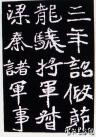 三年詔假節
龍驤將軍督
梁秦諸軍事